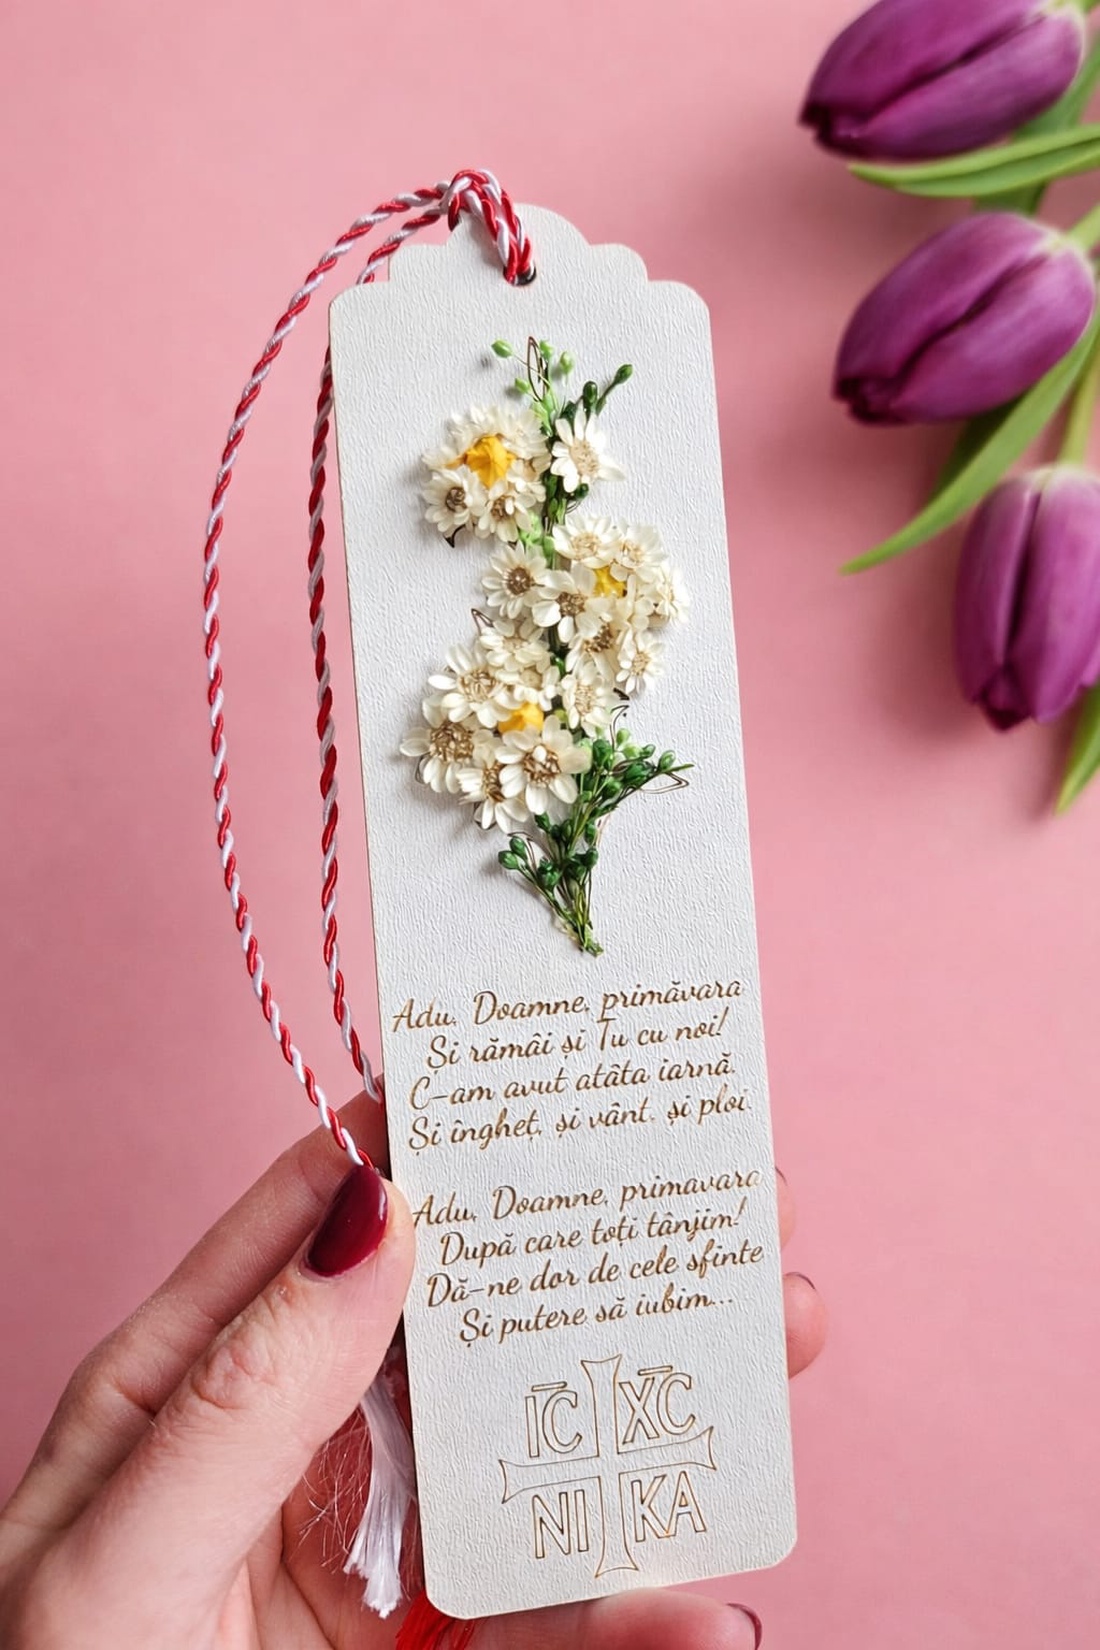 Adu, Doamne, primăvara
Și rămâi și Tu cu noi!
C-am avut atâta iarnă,
Și îngheț, și vânt, și ploi.
Adu, Doamne, primavara
După care toți tânjim!
Dă-ne dor de cele sfinte
Și putere să iubim...
IC XC
NI KA